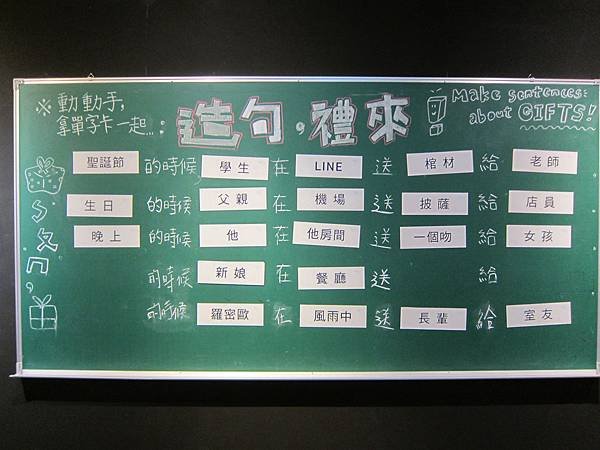 ※動動手,
拿單字卡一起...:
造句,禮來
Make sentences:
about GIFTS!
聖誕節 的時候, 學生 在 LINE 送 棺材 給 老師
生日 的時候 父親 在 機場 送 披薩 給 店員
晚上 的時候 他 在 他房間 送 一個吻 給 女孩
的時候 新娘 在 餐廳 送 給
的時候 羅密歐 在 風雨中 送 長輩 給 室友